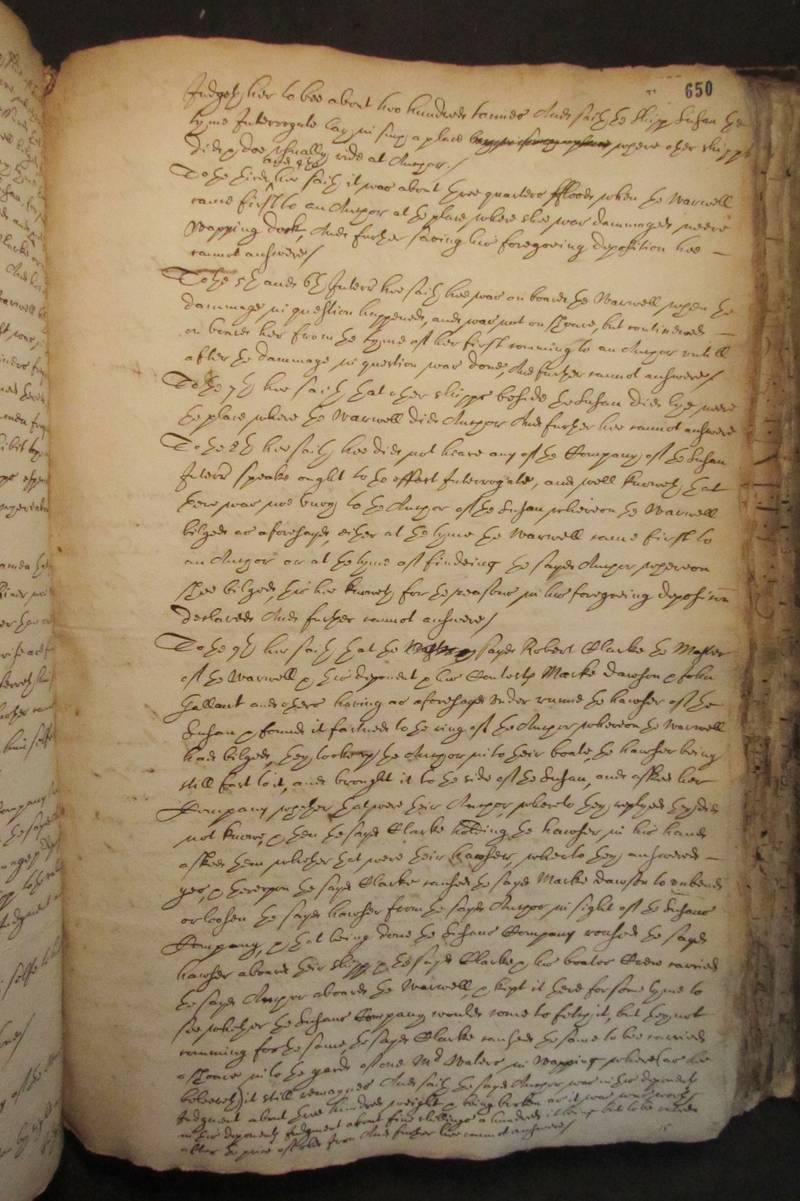 650
Judgeth her to bee about two hundred tonnes And saith the shipp Susan the
tyme Interrogate lay in such a place where other shipps
did & doe usually ride at Anchor./
To the third hee saith it was about three quarters fflood when the Warwell
came first to an Anchor at the place where shee was dammaged neere
Wapping dock, And further saving his foregoeing deposition hee
cannot answere/
To the 5th and 6th Interr hee saith hee was on board the Warwell when the
dammage in question happened, and was not on shoare, but continued
on board her from the tyme of her first comming to an Anchor untill
after the dammage in question was done, And further cannot answere/
To the 7th hee saith that other shipps beside the Susan did lye neere
the place where the Warwell did Anchor And further hee cannot answere
To the 8th hee saith hee did not heare any of the Company of the Susan
Interr speake ought to the effect Interrogate, and well knoweth that
there was noe buoy to the Anchor of the Susan whereon the Warwell
bilged as aforesayd, either at the tyme the Warwell came first to
an Anchor or at the tyme of findeing the sayd Anchor whereon
shee bilged, this hee knoweth for the reasons in his foregoeing deposition
declared And further cannot answere/
To the 9th hee saith that the sayd Robert Clarke the Master
of the Warwell & this deponent & his Contests Marke Dawson & John
Gallant and others having as aforesayd under runne the hawser of the
Susan & found it fastned to the ring of the Anchor whereon the Warwell
had bilged, they tooke the Anchor into their boate, the hawser being
still fast to it, and brought it to the side of the Susan, and asked her
Company whether that were their Anchor, whereto they replyed they did
not knowe, & then the sayd Clarke holding the hawser in his hand
asked them whether that were their hawser, whereto they answered
yes, & thereupon the sayd Clarke caused the sayd Marke Dawson to unbend
or loosen the sayd hawser from the sayd Anchor in sight of the Susans
Company, & that being done the Susans Company the sayd
hawser aboard their shipp & the sayd Clarke & his boates Crew carried
the sayd Anchor aboard the Warwell, & kept it there for some tyme to
see whether the Susans Company would come to fetch it, but they not
comming for the same, the sayd Clarke caused the same to bee carried
a shoare into the yard of one Mr Waters in Wapping where as hee
beleeveth it still remayneth And saith the sayd Anchor was in this deponents
Judgment about three hundred weight & being broken as it was was worth
in this deponents Judgment about five shillings a hundred it being but to be
after the price of old Iron And further hee cannot answere/